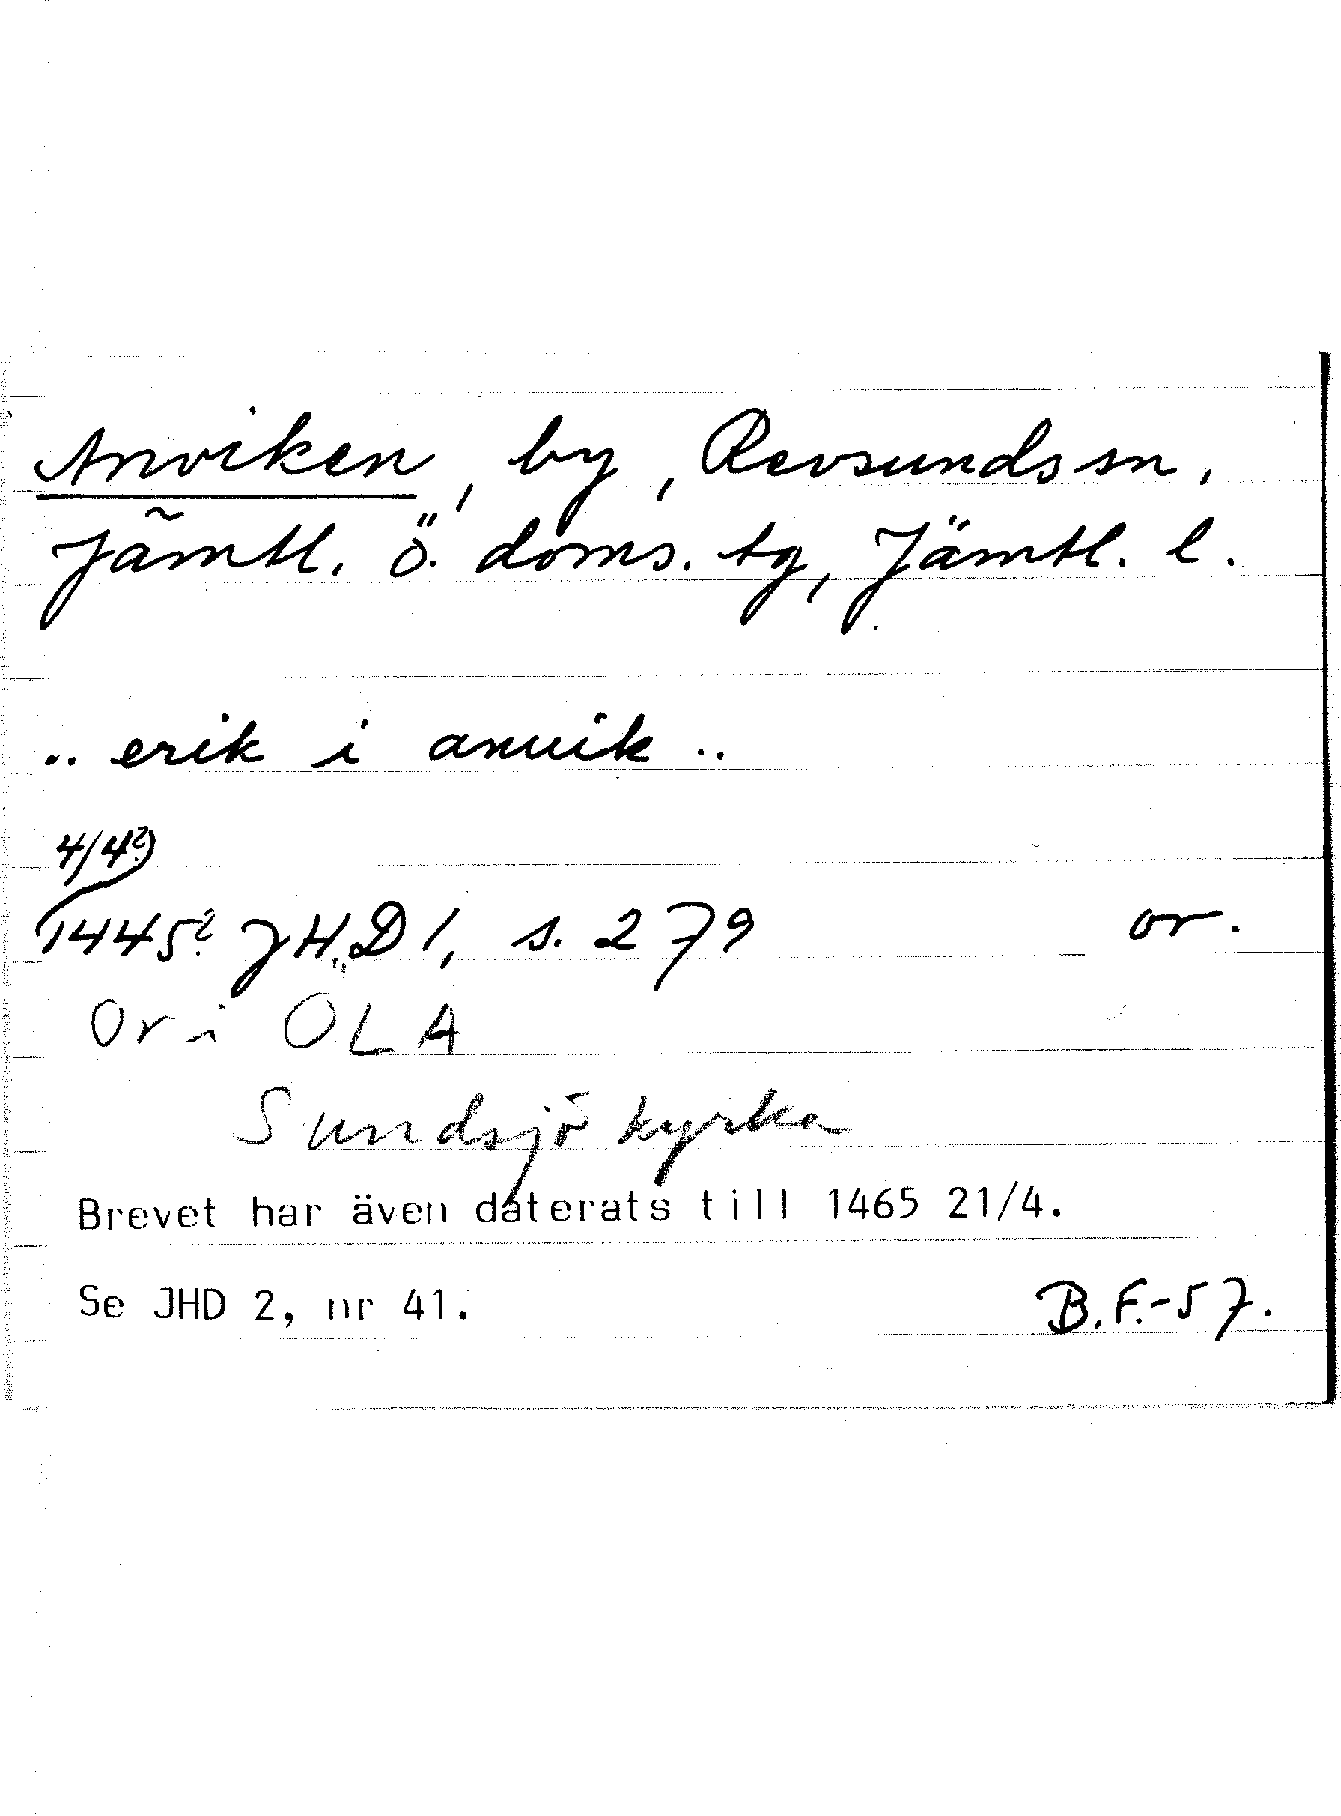 Anviken, by, Revsunds sn,
Jämtl. ö. doms. tg, Jämtl. l.
.. erik i anuik ..
4/4?
1445? JHD 1, s. 279 or.
Or i ÖLA
Sundsjö kyrka
Brevet har även daterats till 1465 21/4.
Se JHD 2, nr 41. B.F.-57.